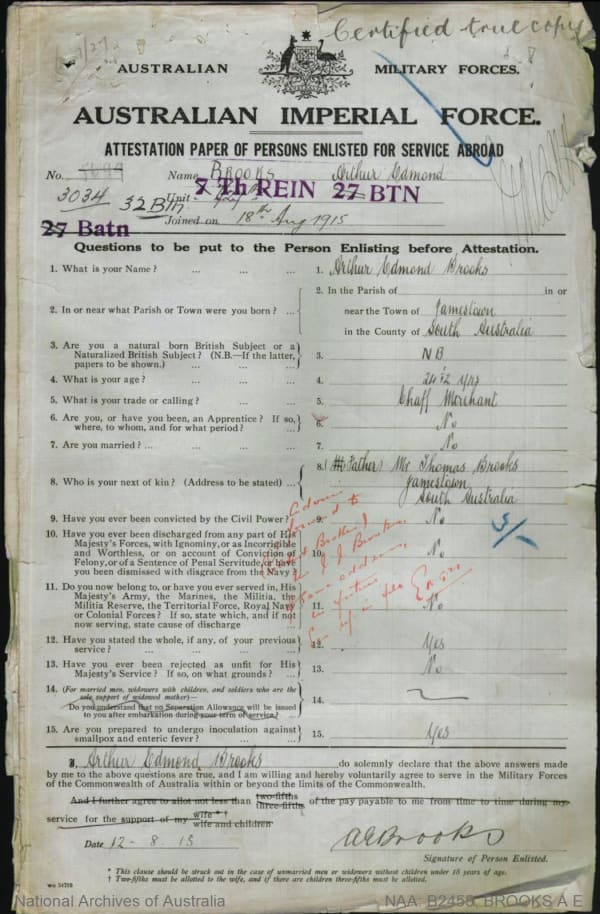 Certified true copy
AUSTRALIAN MILITARY FORCES.
AUSTRALIAN IMPERIAL FORCE.
ATTESTATION PAPER OF PERSONS ENLISTED FOR SERVICE ABROAD
No. Name BROOKS Arthur Edmond
3034 32 Btn Unit 7 Th REIN 27 BTN
Joined on 18th Aug 1915
27 Batn
Questions to be put to the Person Enlisting before Attestation.
1. What is your Name? ... ... ... 1. Arthur Edmond Brooks
2. In the Parish of in or
2. In or near what Parish or Town were you born? ... near the Town of Jamestown
in the County of South Australia
3. Are you a natural born British Subject or a
Naturalized British Subject? (N.B.—If the latter, 3. NB
papers to be shown.) ... ...
4. What is your age? ... ... ... 4. 24 6/12 yrs
5. What is your trade or calling? ... ... 5. Chaff Merchant
6. Are you, or have you been, an Apprentice? If so, 6. No
where, to whom, and for what period? ...
7. Are you married? ... ... ... ... 7. No
8. (Father) Mr Thomas Brooks
8. Who is your next of kin? (Address to be stated) ... Jamestown
South Australia
9. Have you ever been convicted by the Civil Power? 9. No
5/-
10. Have you ever been discharged from any part of His
Majesty's Forces, with Ignominy, or as Incorrigible
and Worthless, or on account of Conviction of 10. No
Felony, or of a Sentence of Penal Servitude, or have
you been dismissed with disgrace from the Navy?
11. Do you now belong to, or have you ever served in, His
Majesty's Army, the Marines, the Militia, the
Militia Reserve, the Territorial Force, Royal Navy 11. No
or Colonial Forces? If so, state which, and if not
now serving, state cause of discharge
12. Have you stated the whole, if any, of your previous 12. Yes
service? ... ... ... ...
13. Have you ever been rejected as unfit for His 13. No
Majesty's Service? If so, on what grounds?
14. (For married men, widowers with children, and soldiers who are the
sole support of widowed mother)— 14.
Do you understand that no Separation Allowance will be issued
to you after embarkation during your term of service?
15. Are you prepared to undergo inoculation against 15. Yes
smallpox and enteric fever? ... ...
I, Arthur Edmond Brooks do solemnly declare that the above answers made
by me to the above questions are true, and I am willing and hereby voluntarily agree to serve in the Military Forces
of the Commonwealth of Australia within or beyond the limits of the Commonwealth.
And I further agree to allot not less than two-fifths three-fifths of the pay payable to me from time to time during my
service for the support of my wife *† wife and children
Date 12-8-15 AEBrooks
Signature of Person Enlisted.
* This clause should be struck out in the case of unmarried men or widowers without children under 18 years of age.
† Two-fifths must be allotted to the wife, and if there are children three-fifths must be allotted.
National Archives of Australia NAA: B2455, BROOKS A E